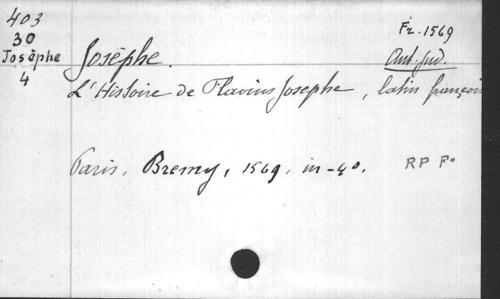 403
30
Josèphe
4
Fr. 1569
Ant. Jud.
Josèphe.
L'Histoire de Flavius Josephe, latin françois
Paris, Bremy, 1569, in-4o.
RP Fo